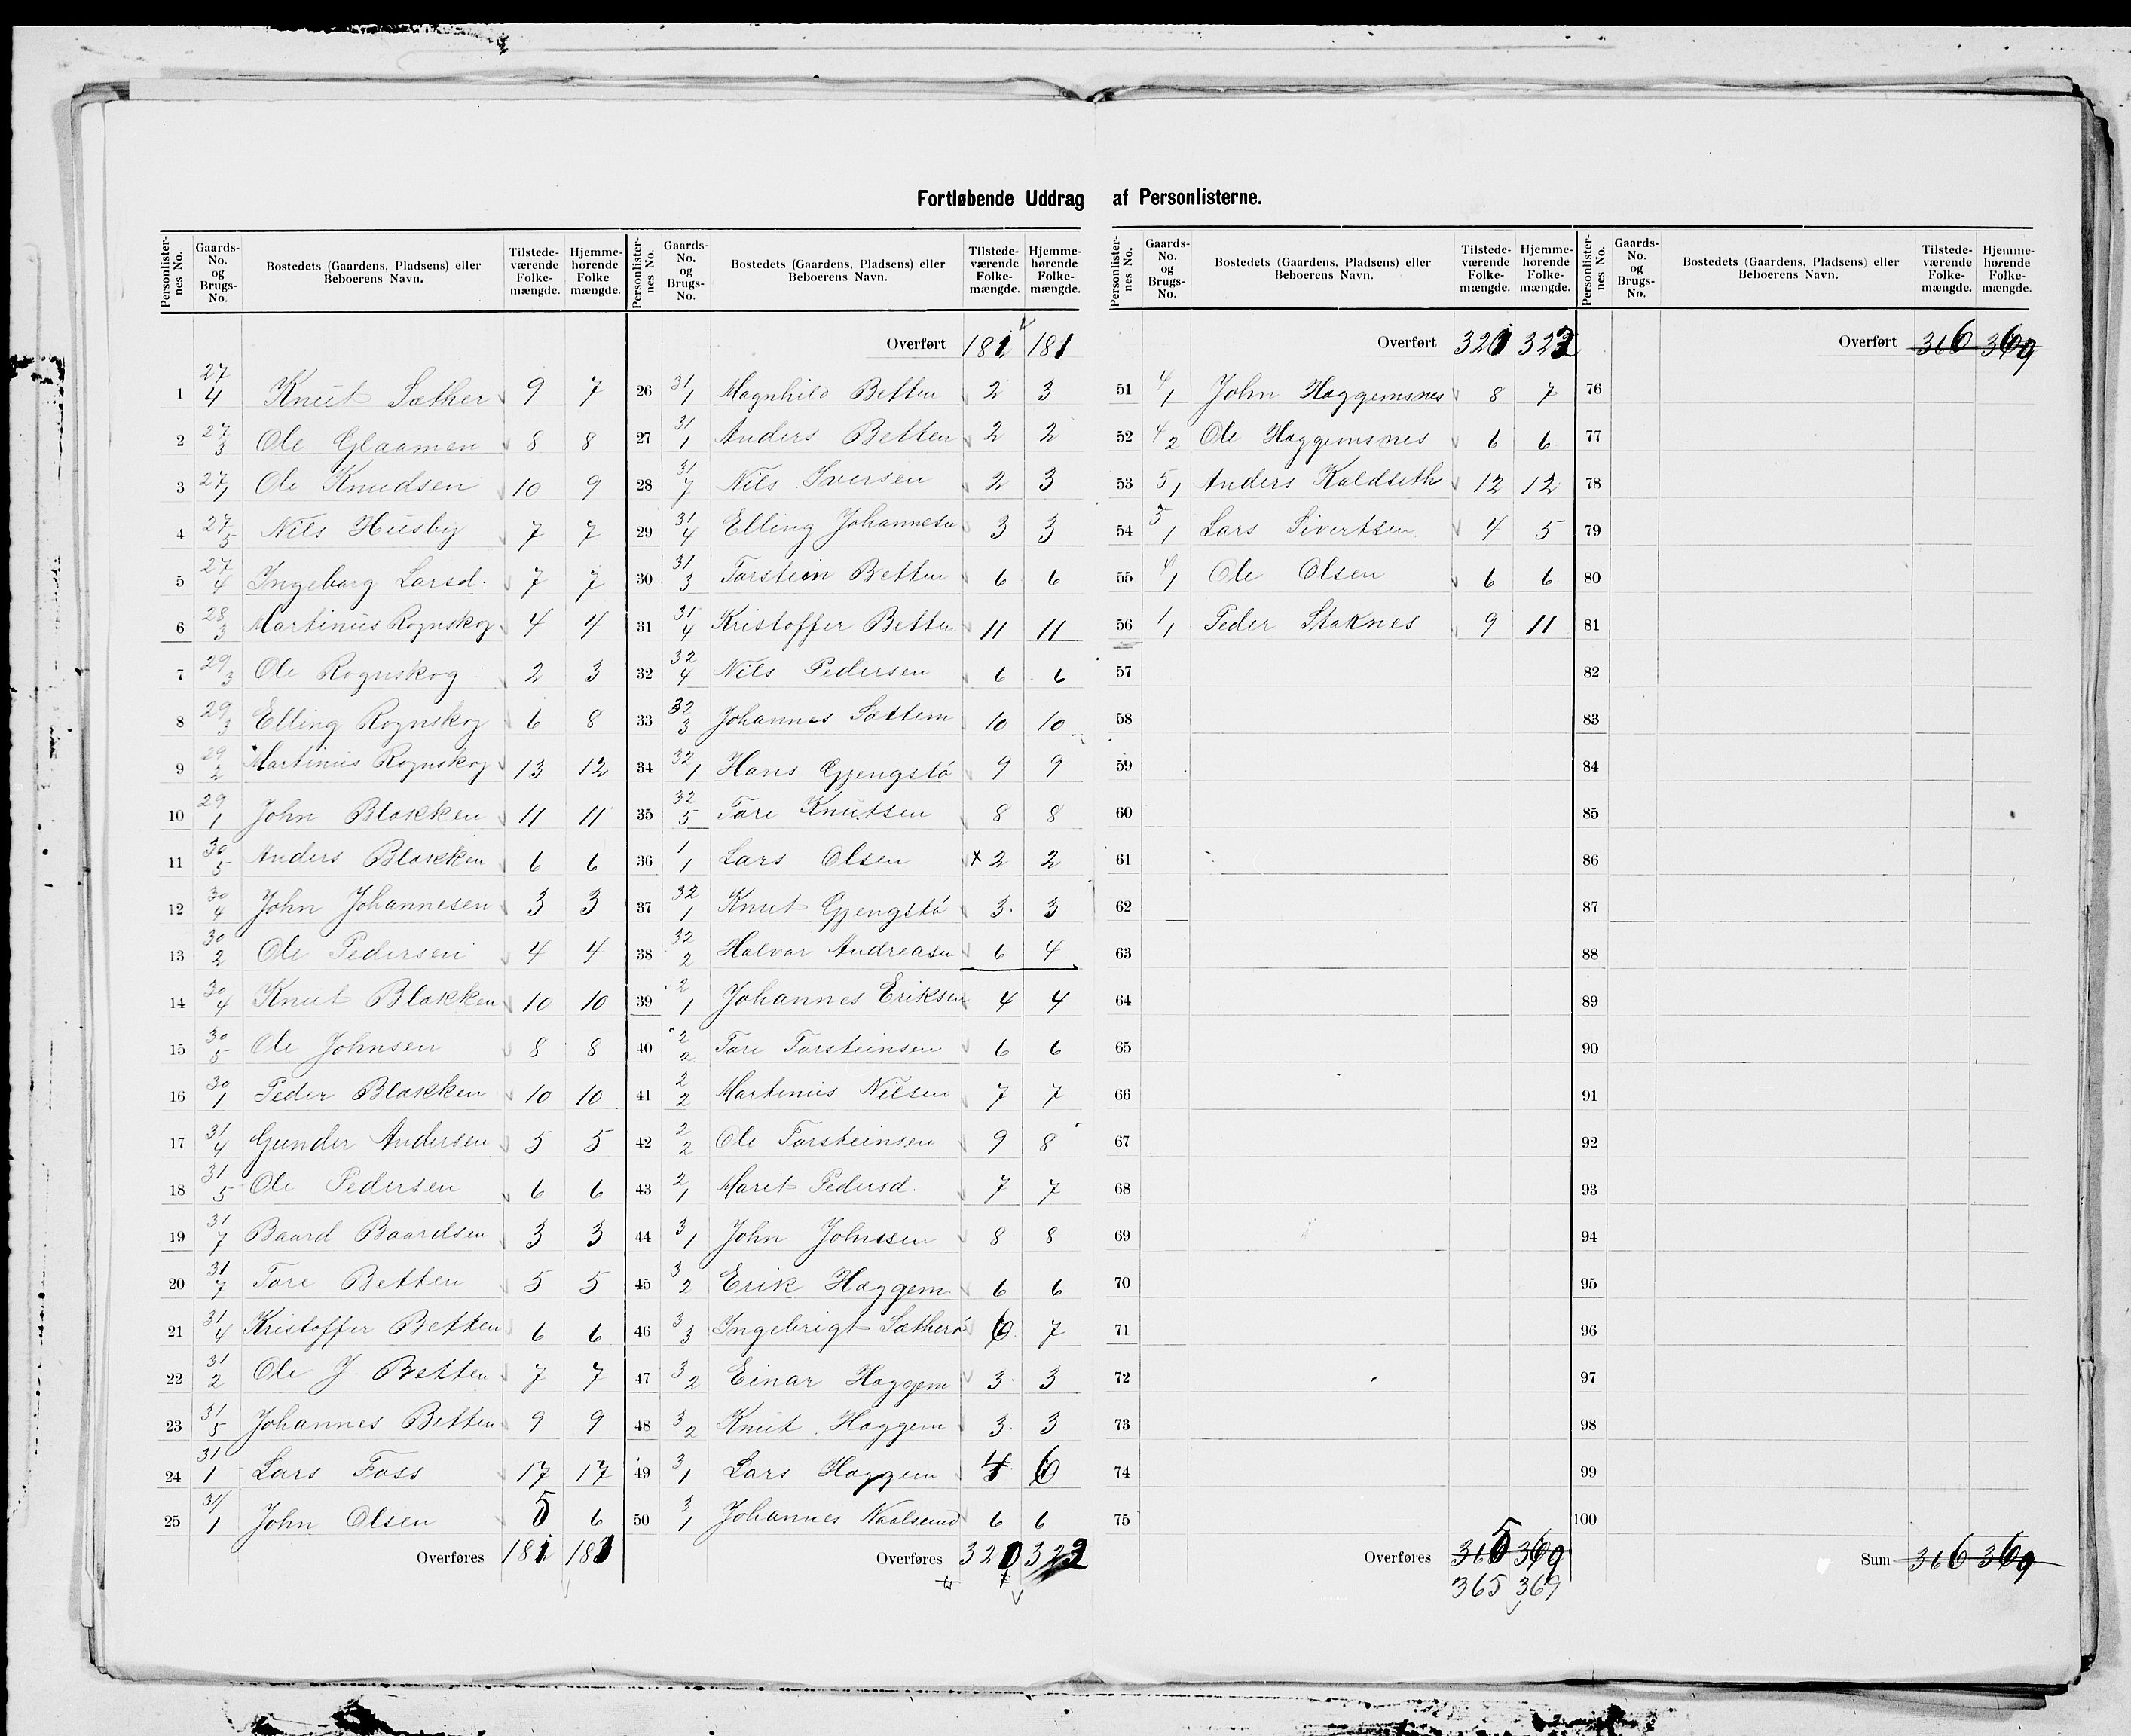 Fortløbende Uddrag af Personlisterne.
Personlisternes No. Gaards-No. og Brugs-No. Bostedets (Gaardens, Pladsens) eller Beboerens Navn. Tilstedeværende Folkemængde. Hjemmehørende Folkemængde.
1 27/4 Knut Sæther 9 7
2 27/3 Ole Glaamen 8 8
3 27/1 Ole Knudsen 10 9
4 27/5 Nils Husby 7 7
5 27/4 Ingeborg Larsd. 7 7
6 28/3 Martinus Rognskog 4 4
7 29/3 Ole Rognskog 2 3
8 29/3 Elling Rognskog 6 8
9 29/2 Martinus Rognskog 13 12
10 29/1 John Blakken 11 11
11 30/5 Anders Blakken 6 6
12 30/4 John Johannesen 3 3
13 30/2 Ole Pedersen 4 4
14 30/4 Knut Blakken 10 10
15 30/5 Ole Johnsen 8 8
16 30/1 Peder Blakken 10 10
17 31/4 Gunder Andersen 5 5
18 31/5 Ole Pedersen 6 6
19 31/7 Baard Baardsen 3 3
20 31/7 Tore Betten 5 5
21 31/4 Kristoffer Betten 6 6
22 31/2 Ole J. Betten 7 7
23 31/5 Johannes Betten 9 9
24 31/1 Lars Foss 17 17
25 31/1 John Olsen 5 6
Overføres 181 181
Personlisternes No. Gaards-No. og Brugs-No. Bostedets (Gaardens, Pladsens) eller Beboerens Navn. Tilstedeværende Folkemængde. Hjemmehørende Folkemængde.
Overført 181 181
26 31/1 Magnhild Betten 2 3
27 31/1 Anders Betten 2 2
28 31/7 Nils Iversen 2 3
29 31/4 Elling Johannesen 3 3
30 31/3 Torstein Betten 6 6
31 31/4 Kristoffer Betten 11 11
32 32/4 Nils Pedersen 6 6
33 32/3 Johannes Sættem 10 10
34 32/1 Hans Gjengstø 9 9
35 32/5 Tore Knutsen 8 8
36 1/1 Lars Olsen x 2 2
37 32/1 Knut Gjengstø 3 3
38 32/2 Halvor Andreasen 6 4
39 2/1 Johannes Eriksen 4 4
40 2/2 Tore Torsteinsen 6 6
41 2/2 Martinus Nilsen 7 7
42 2/2 Ole Torsteinsen 9 8
43 2/1 Marit Pedersd. 7 7
44 3/1 John Johnsen 8 8
45 3/2 Erik Haggem 6 6
46 3/3 Ingebrigt Sætherø 6 7
47 3/2 Einar Haggem 3 3
48 3/2 Knut Haggem 3 3
49 3/1 Lars Haggem 4 6
50 3/1 Johannes Naalsund 6 6
Overføres 320 322
Personlisternes No. Gaards-No. og Brugs-No. Bostedets (Gaardens, Pladsens) eller Beboerens Navn. Tilstedeværende Folkemængde. Hjemmehørende Folkemængde.
Overført 320 322
51 4/1 John Haggemsnes 8 7
52 4/2 Ole Haggemsnes 6 6
53 5/1 Anders Koldseth 12 12
54 5/1 Lars Sivertsen 4 5
55 4/1 Ole Olsen 6 6
56 1/1 Peder Staknes 9 11
57
58
59
60
61
62
63
64
65
66
67
68
69
70
71
72
73
74
75
Overføres 365 369
365 369
Personlisternes No. Gaards-No. og Brugs-No. Bostedets (Gaardens, Pladsens) eller Beboerens Navn. Tilstedeværende Folkemængde. Hjemmehørende Folkemængde.
Overført 366 369
76
77
78
79
80
81
82
83
84
85
86
87
88
89
90
91
92
93
94
95
96
97
98
99
100
Sum 366 369